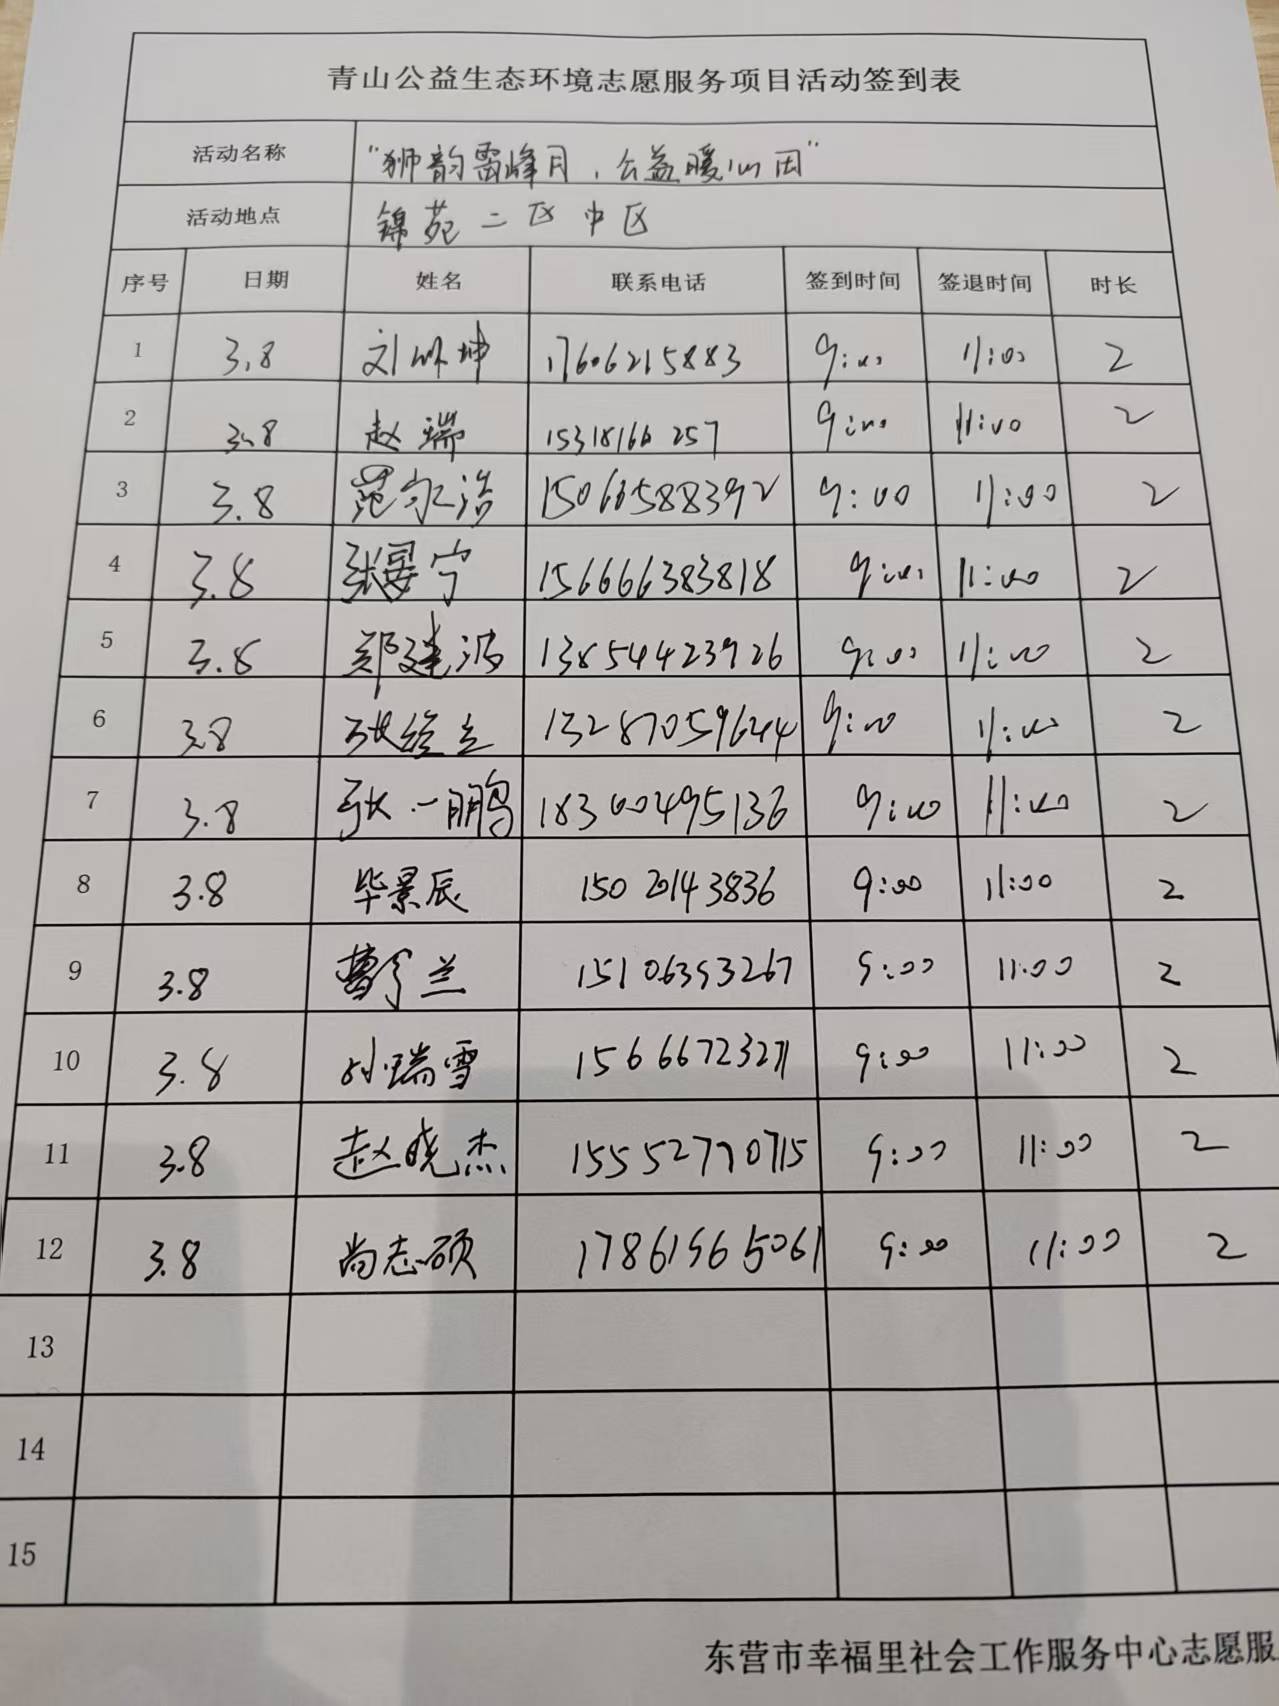 青山公益生态环境志愿服务项目活动签到表
活动名称 “狮韵雷峰月，公益暖心田”
活动地点 锦苑二区中区
序号 日期 姓名 联系电话 签到时间 签退时间 时长
1 3.8 刘 坤 17606215883 9:00 11:00 2
2 3.8 赵瑞 15318166257 9:00 11:00 2
3 3.8 范永浩 15066588392 9:00 11:00 2
4 3.8 张晏宁 156666383818 9:00 11:00 2
5 3.8 郑建波 13854423926 9:00 11:00 2
6 3.8 张 13287059644 9:00 11:00 2
7 3.8 张一鹏 18300495136 9:00 11:00 2
8 3.8 毕景辰 15020143836 9:00 11:00 2
9 3.8 曹 兰 15106393267 9:00 11:00 2
10 3.8 孙瑞雪 15666723271 9:00 11:00 2
11 3.8 赵晓杰 15552770715 9:00 11:00 2
12 3.8 尚志硕 17861965061 9:00 11:00 2
13
14
15
东营市幸福里社会工作服务中心志愿服